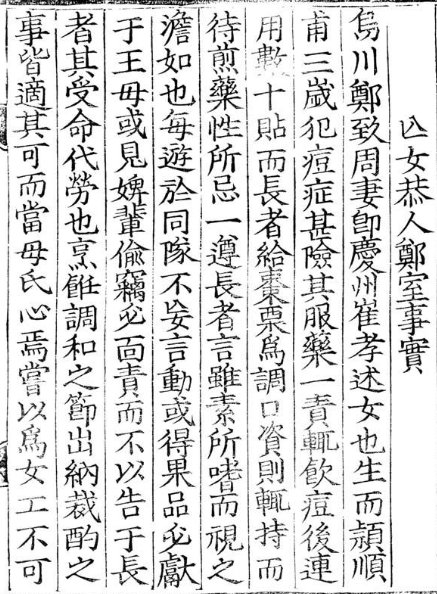 亡女恭人鄭室事實
烏川鄭致周妻卽慶州崔孝述女也生而頴順
甫三歲犯痘症甚險其服藥一責輒飮痘後連
用數十貼而長者給棗栗爲調口資則輒持而
待煎藥性所忌一遵長者言雖素所嗜而視之
澹如也每遊於同隊不妄言動或得果品必獻
于王母或見婢輩偸竊必面責而不以告于長
者其受命代勞也烹飪調和之節出納裁酌之
事皆適其可而當母氏心焉嘗以爲女工不可